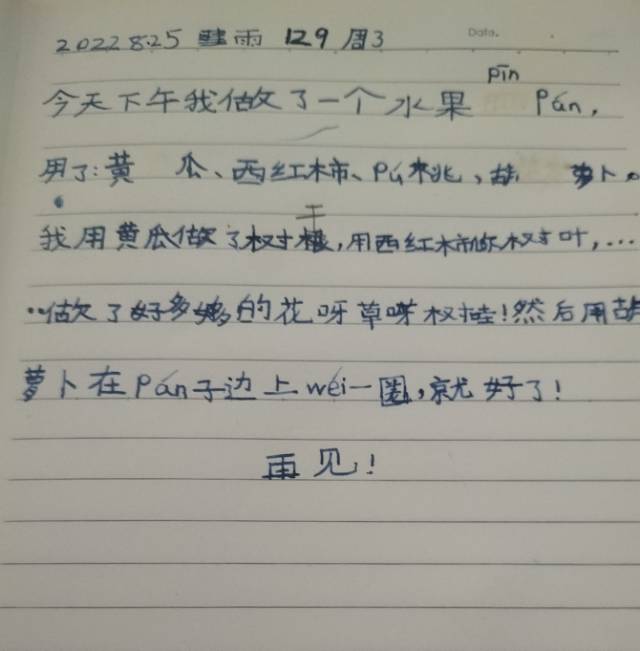 2022 8.25 雨 129 周3
Data.
pīn
今天下午我做了一个水果 Pán,
用了:黄 瓜、西红柿、Pú桃,胡 萝卜。
干
我用黄瓜做了树根,用西红柿做树叶,...
..做了好多的花呀草呀树挂!然后用胡
萝卜在Pán子边上wéi一圈,就好了!
再见!